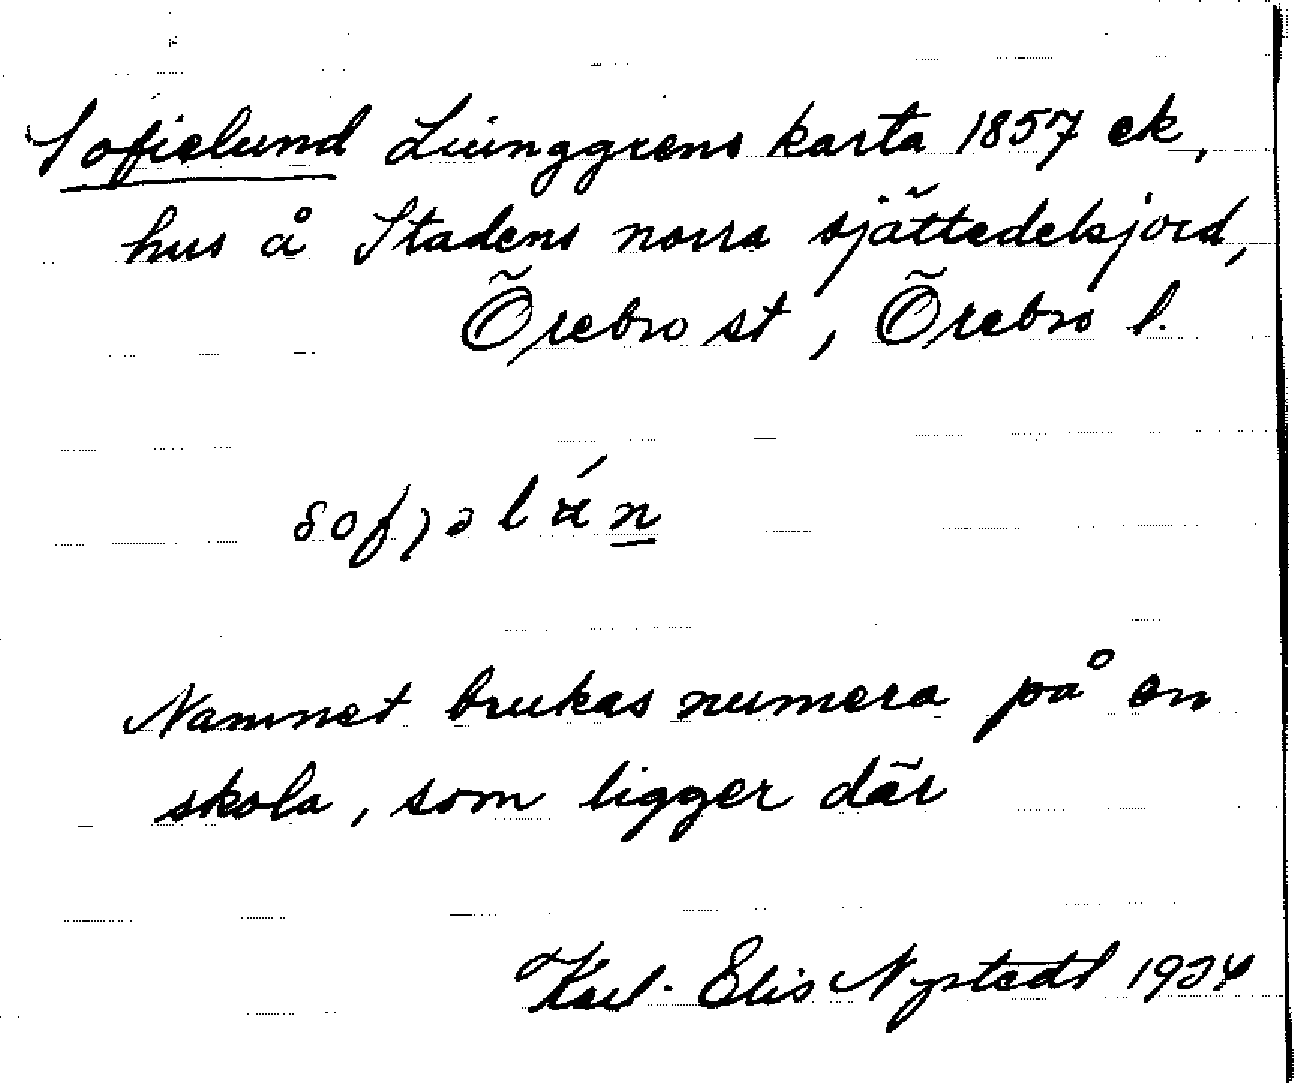 Sofielund Ljunggrens karta 1857 ek,
hus å Stadens norra sjättedelsjord,
Örebro st, Örebro l.
sofjəlán
Namnet brukas numera på en
skola, som ligger där
Karl-Elis Nystedt 1924